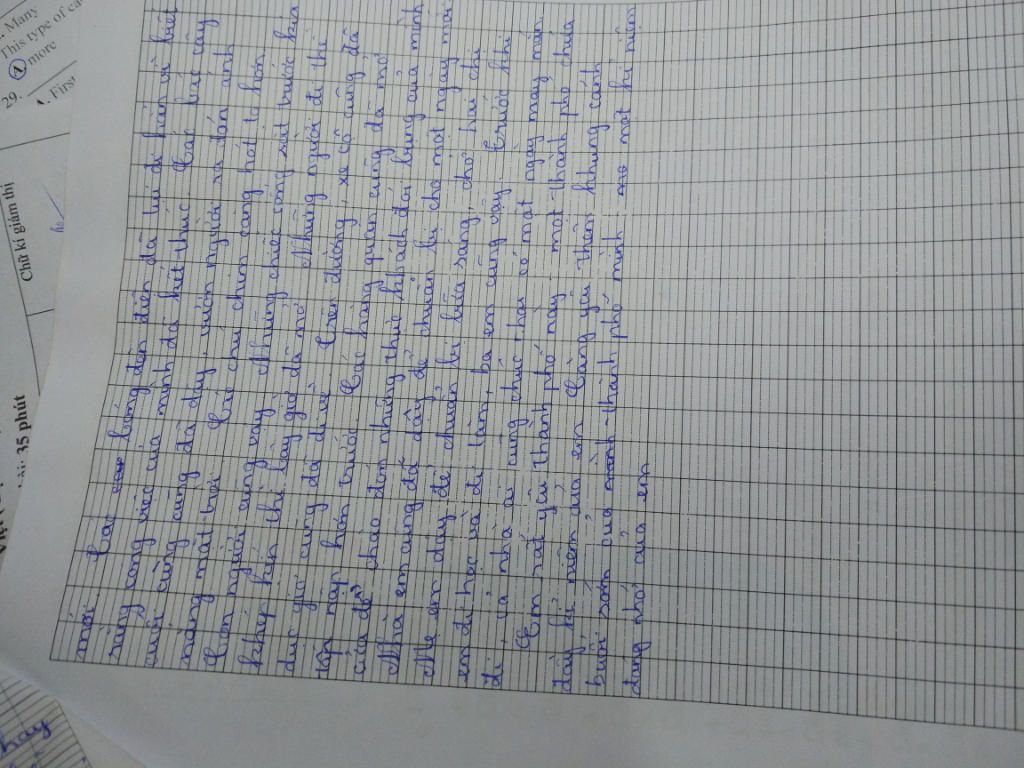 . Many
This type of ca
1 more
29.
. First
Chữ kí giám thị
35 phút
mới. Các bóng đèn điện đã từ từ biến vì biết
rằng công việc của mình đã kết thúc. Các bác cây
cuối cùng cũng đã dậy, vươn người ra đón ánh
nắng mặt trời. Các chú chim càng hót to hơn.
Con người cũng vậy. Những chiếc cổng sắt trước kia
khép kín thì bây giờ đã mở. Những người đi thể
dục giờ cũng đã đi về. Trên đường, xe cộ cũng đã
tấp nập hơn trước. Các hàng quán cũng đã mở
cửa để chào đón những thực khách đói bụng của mình.
Nhà em cũng đã dậy để chuẩn bị cho một ngày mới.
Mẹ em dậy để chuẩn bị bữa sáng, cho hai chị
em đi học và đi làm, ba em cũng vậy. Trước khi
đi, cả nhà ai cũng chúc nhau có một ngày may mắn.
Em rất yêu thành phố này, một thành phố chứa
đầy kỉ niệm của em. Càng yêu thêm khung cảnh
buổi sớm của thành phố mình một kỉ niệm
đáng nhớ của em
hay